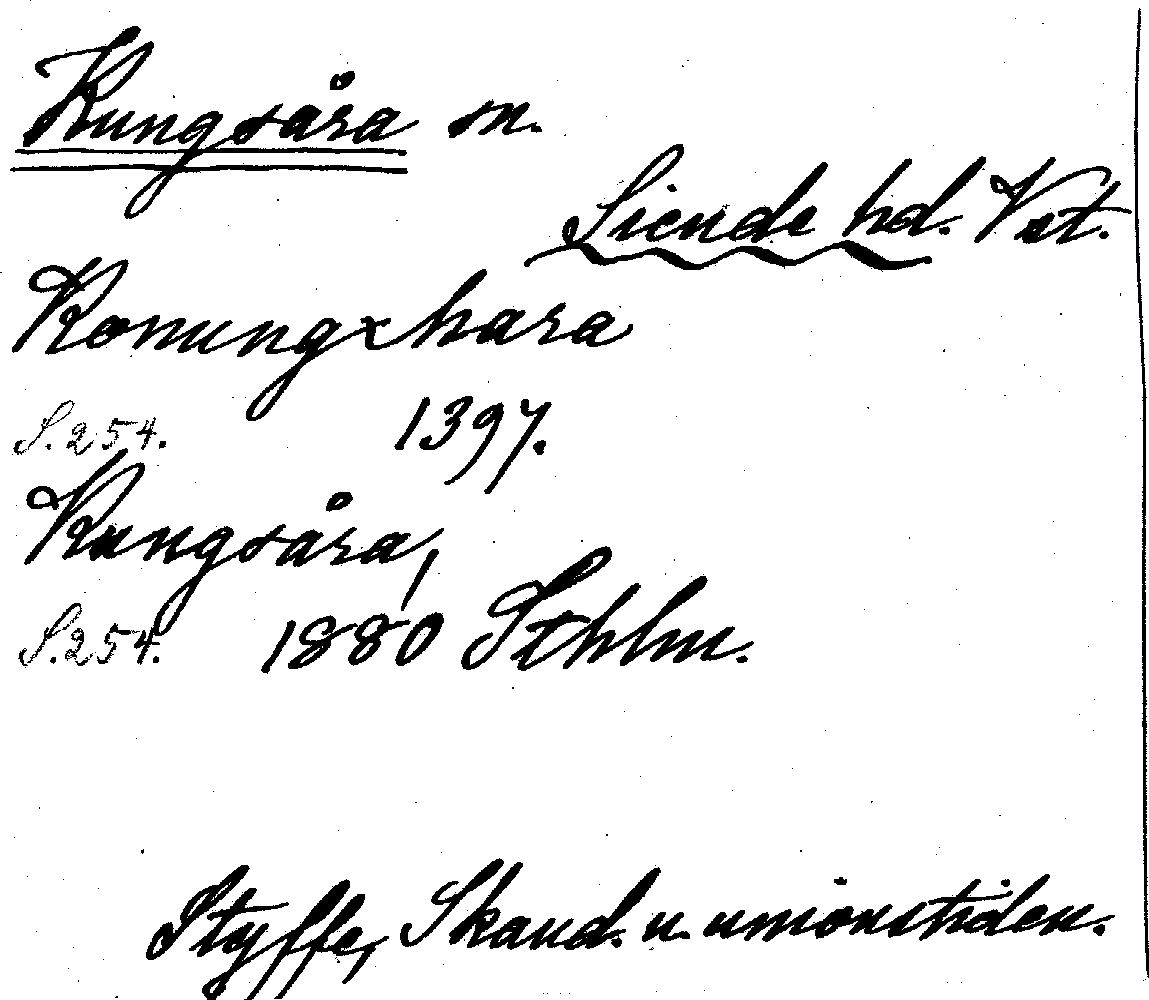 Kungsåra sn.
Siende hd. Vst.
Konungxhara
S. 254. 1397.
Kungsåra,
S. 254. 1880 Sthlm.
Styffe, Skand. u. unionstiden.